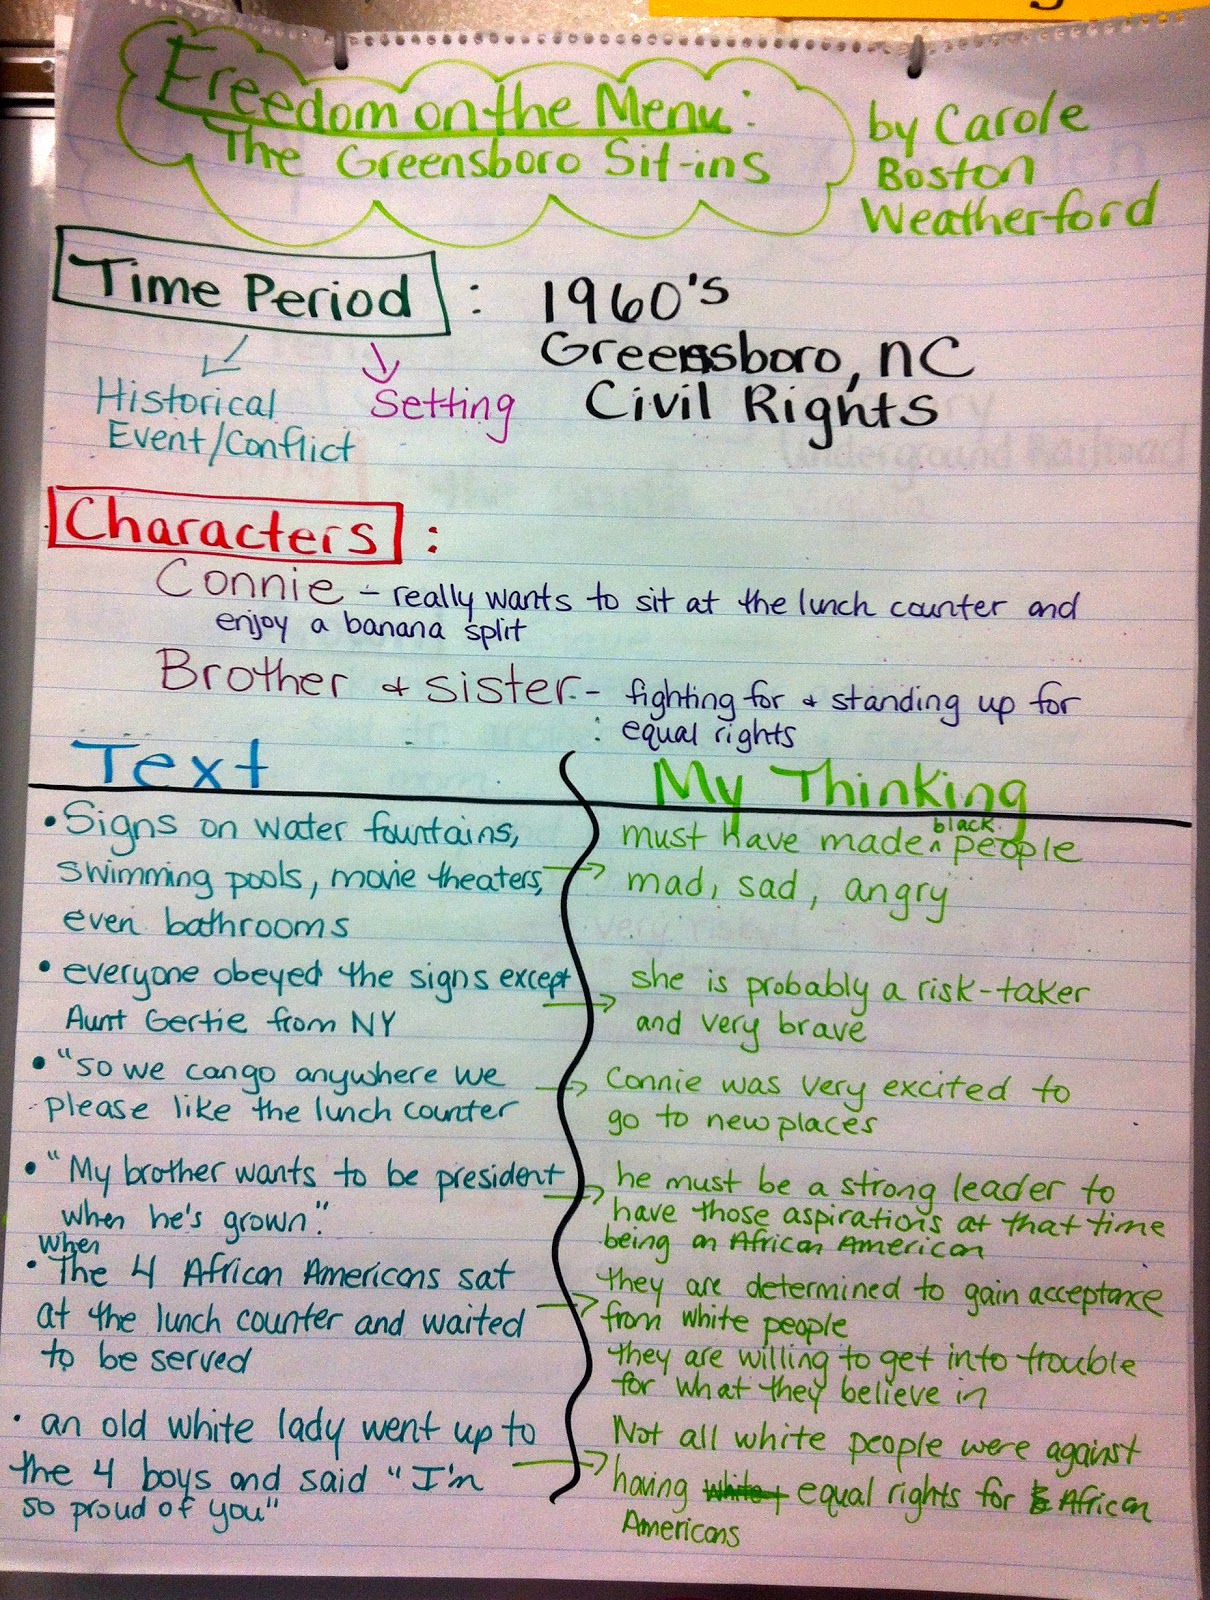 Freedom on the Menu:
The Greensboro Sit-ins
by Carole
Boston
Weatherford
Time Period :
1960's
Greensboro, NC
Civil Rights
Historical
Event/Conflict
Setting
Characters :
Connie - really wants to sit at the lunch counter and
enjoy a banana split
Brother & sister - fighting for & standing up for
: equal rights
Text
• Signs on water fountains,
swimming pools, movie theaters,
even bathrooms
• everyone obeyed the signs except
Aunt Gertie from NY
• "so we can go anywhere we
please like the lunch counter
• "My brother wants to be president
when he's grown."
When
• The 4 African Americans sat
at the lunch counter and waited
to be served
• an old white lady went up to
the 4 boys and said "I'm
so proud of you"
My Thinking
must have made ^ black people
mad, sad, angry
she is probably a risk-taker
and very brave
Connie was very excited to
go to new places
he must be a strong leader to
have those aspirations at that time
being an African American
they are determined to gain acceptance
from white people
they are willing to get into trouble
for what they believe in
Not all white people were against
having equal rights for African
Americans
Underground Railroad